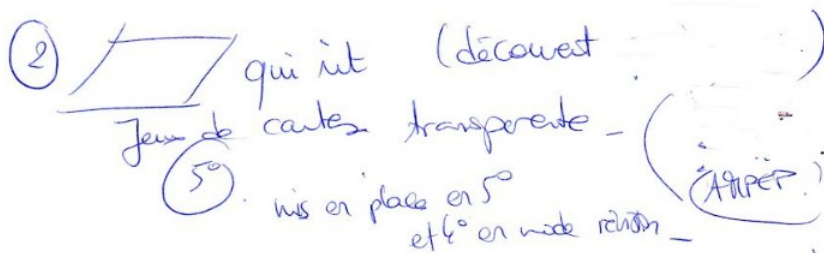 ② qui rit (découvert )
Jeux de cartes transparente - (
5° . mis en place en 5° (APMEP.)
et 4° en mode révision -